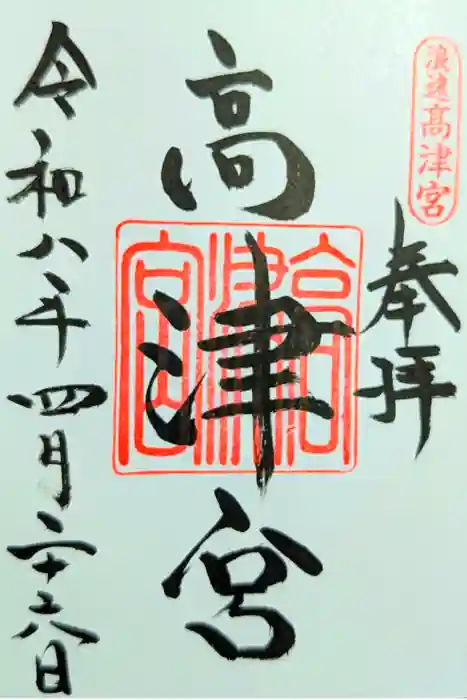 浪速高津宮
奉拝
高津宮
高津宮
令和八年四月二十六日